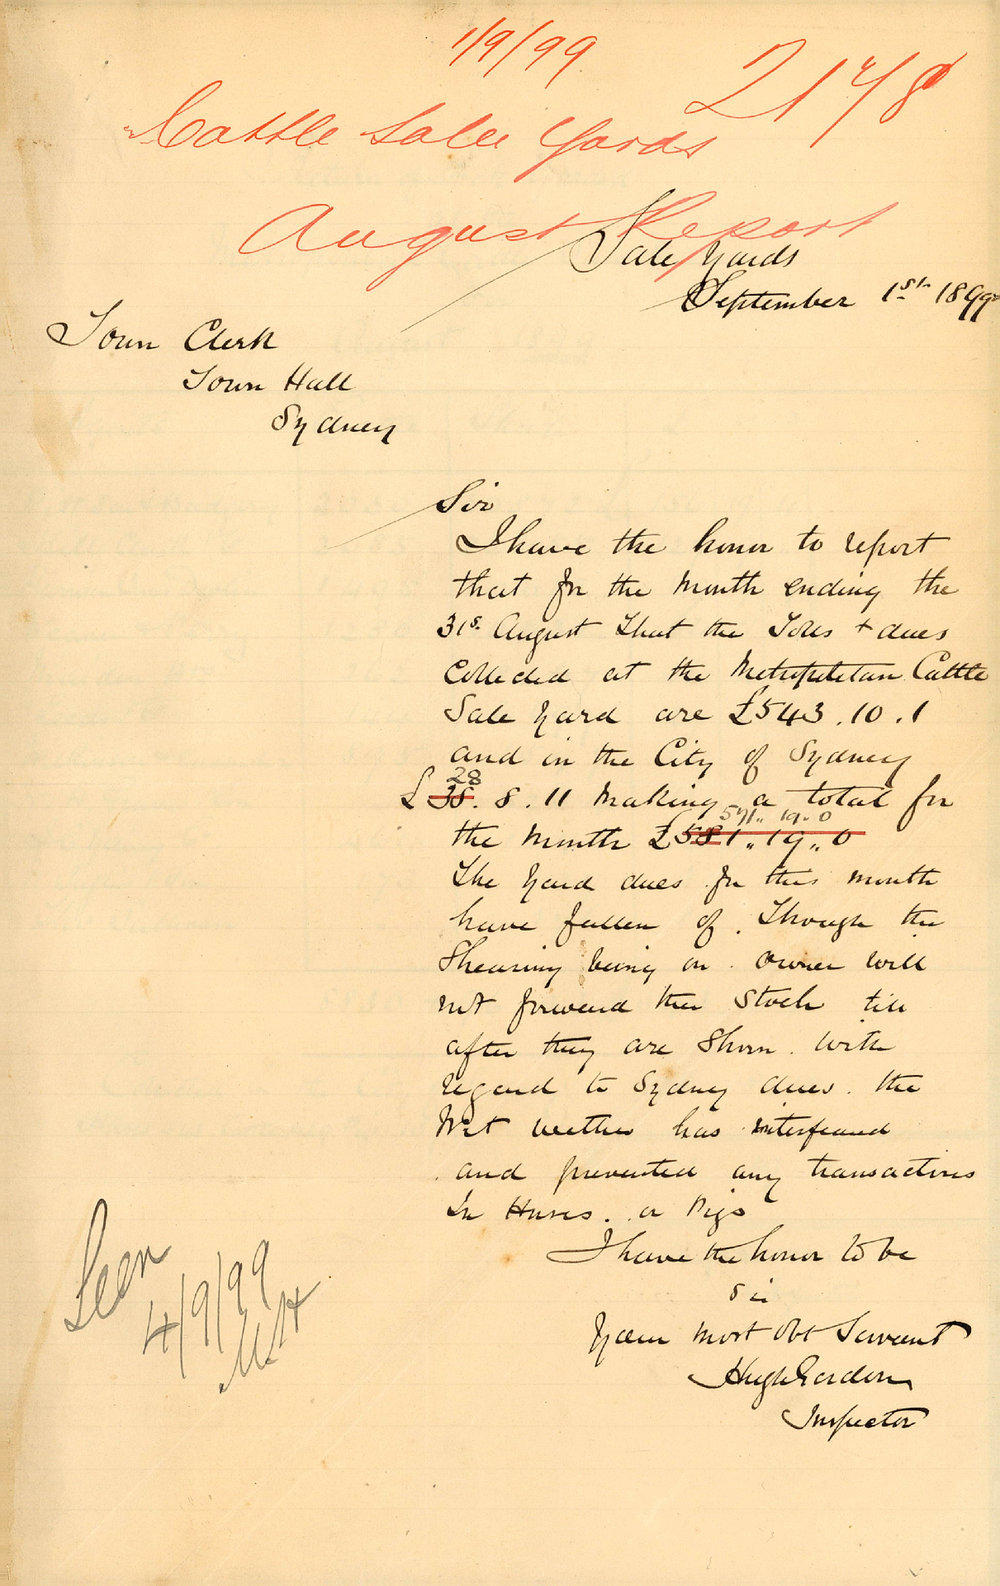 1/9/99
2178
Cattle Sale Yards
August Report
Sale Yards
September 1st 1899
Town Clerk
Town Hall
Sydney
Sir
I have the honor to report
that for the Month ending the
31s. August That the Toles + dues
Collected at the Metropolitan Cattle
Sale Yard are £543.10.1
and in the City of Sydney
28
£38. 8. 11 Making a total for
571.. 19.. 0
the Month £581.. 19.. 0
The Yard dues for this month
have fallen of. Though the
Shearing being on. owner will
not forward ther Stock till
after they are Shorn. with
regard to Sydney dues. the
Wet wether has interfeared
and prevented any transactions
In Horses. or Pigs
I have the honor to be
Sir
Your Most Obt Servant
Hugh Gordon
Inspector
Seen
4/9/99